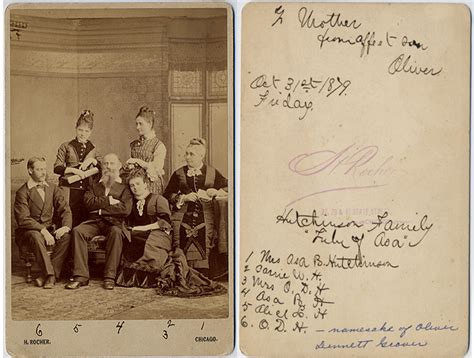 H. ROCHER.
CHICAGO.
6 5 4 3 2 1
To Mother
from affect son
Oliver
Oct 31st 1879.
Friday
H. Rocher
Hutchinson Family
"Tribe of Asa"
1 Mrs Asa B. Hutchinson
2 Carrie W. H.
3 Mrs O. D. H
4 Asa B. H
5 Alice L. H
6. O. D. H - namesake of Oliver
Dennett Grover